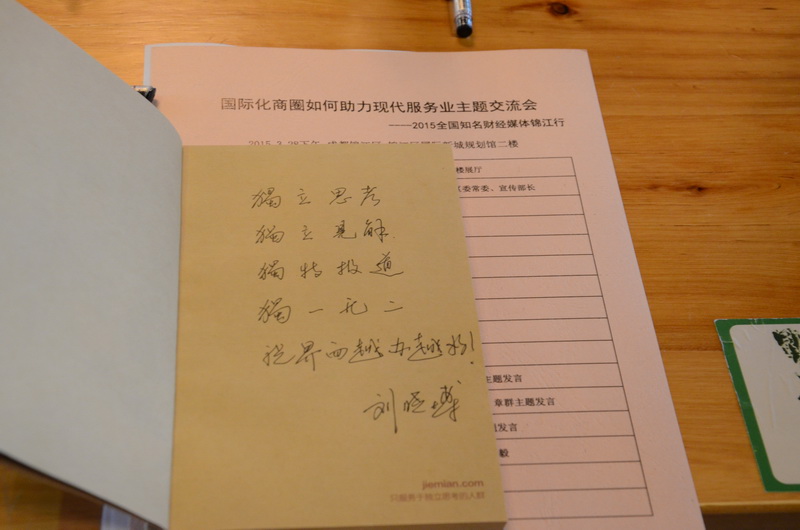 国际化商圈如何助力现代服务业主题交流会
----2015全国知名财经媒体锦江行
2015.3.28下午 城规划馆二楼
楼展厅
委常委、宣传部长
獨立思考
獨立見解
獨特报道
獨一无二
祝界面越办越好!
刘晓博
主题发言
章群主题发言
发言
毅
jiemian.com
只服务于独立思考的人群